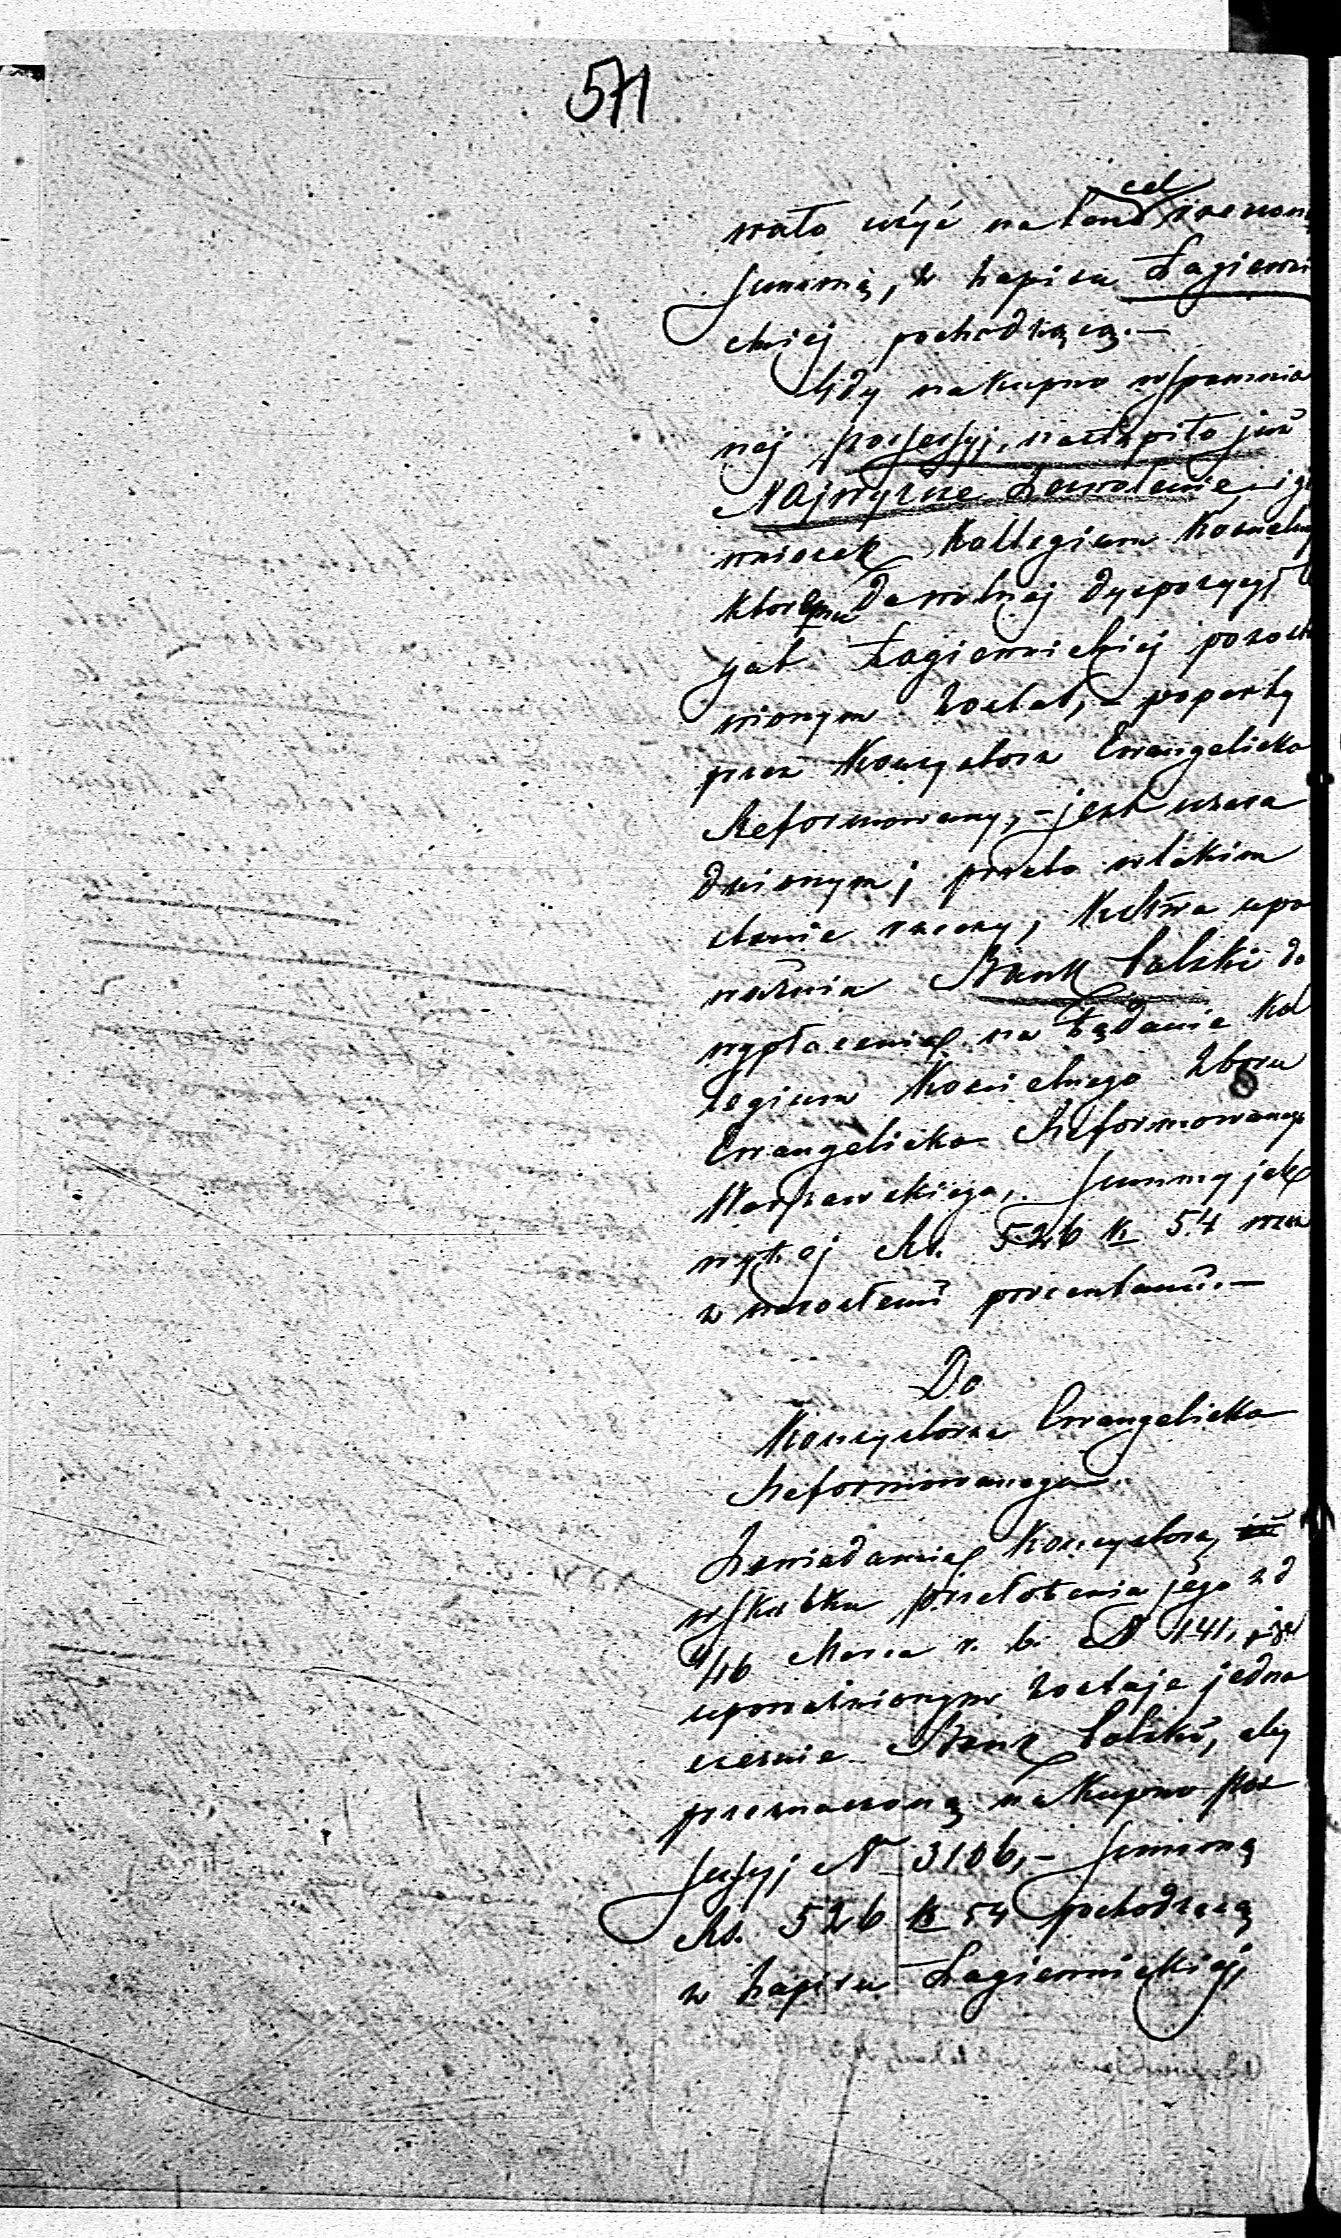 571
wało użyć na ten cel rzeczoną
Summę, z zapisu Łagiewni
ckiej pochodzącą.—
Gdy na kupno wspomnia
nej possessyi, nastąpiło już
Najwyższe zezwolenie, i gdy
wniosek Kollegium Kościelnego
któremu do wolnej dyspozycyi
Łagiewnickiej pozosta
wionym został, – poparty
przez Konsystorz Ewangelicko
Reformowany, – jest uzasa
dnionym; przeto w takim
stanie rzeczy, upo
ważnia Bank Polski do
wypłacenia na żądanie Kol
legium Kościelnego Zboru
Ewangelicko Reformowanego
Warszawskiego, Summy jak
wyżej Rs. 526 k 54 wraz
z urosłemi procentami.—
Do
Konsystorza Ewangelicko
Reformowanego.
Zawiadamia Konsystorz
w skutku przełożenia jego z d
4/16 Marca r. b. N 141, że
upoważnionym zostaje jedno
cześnie Bank Polski, aby
przeznaczoną na kupno Pos
sessyi N 3106, – Summę
Rs. 526 k 54 pochodzącą
z zapisu Łagiewnickiej,